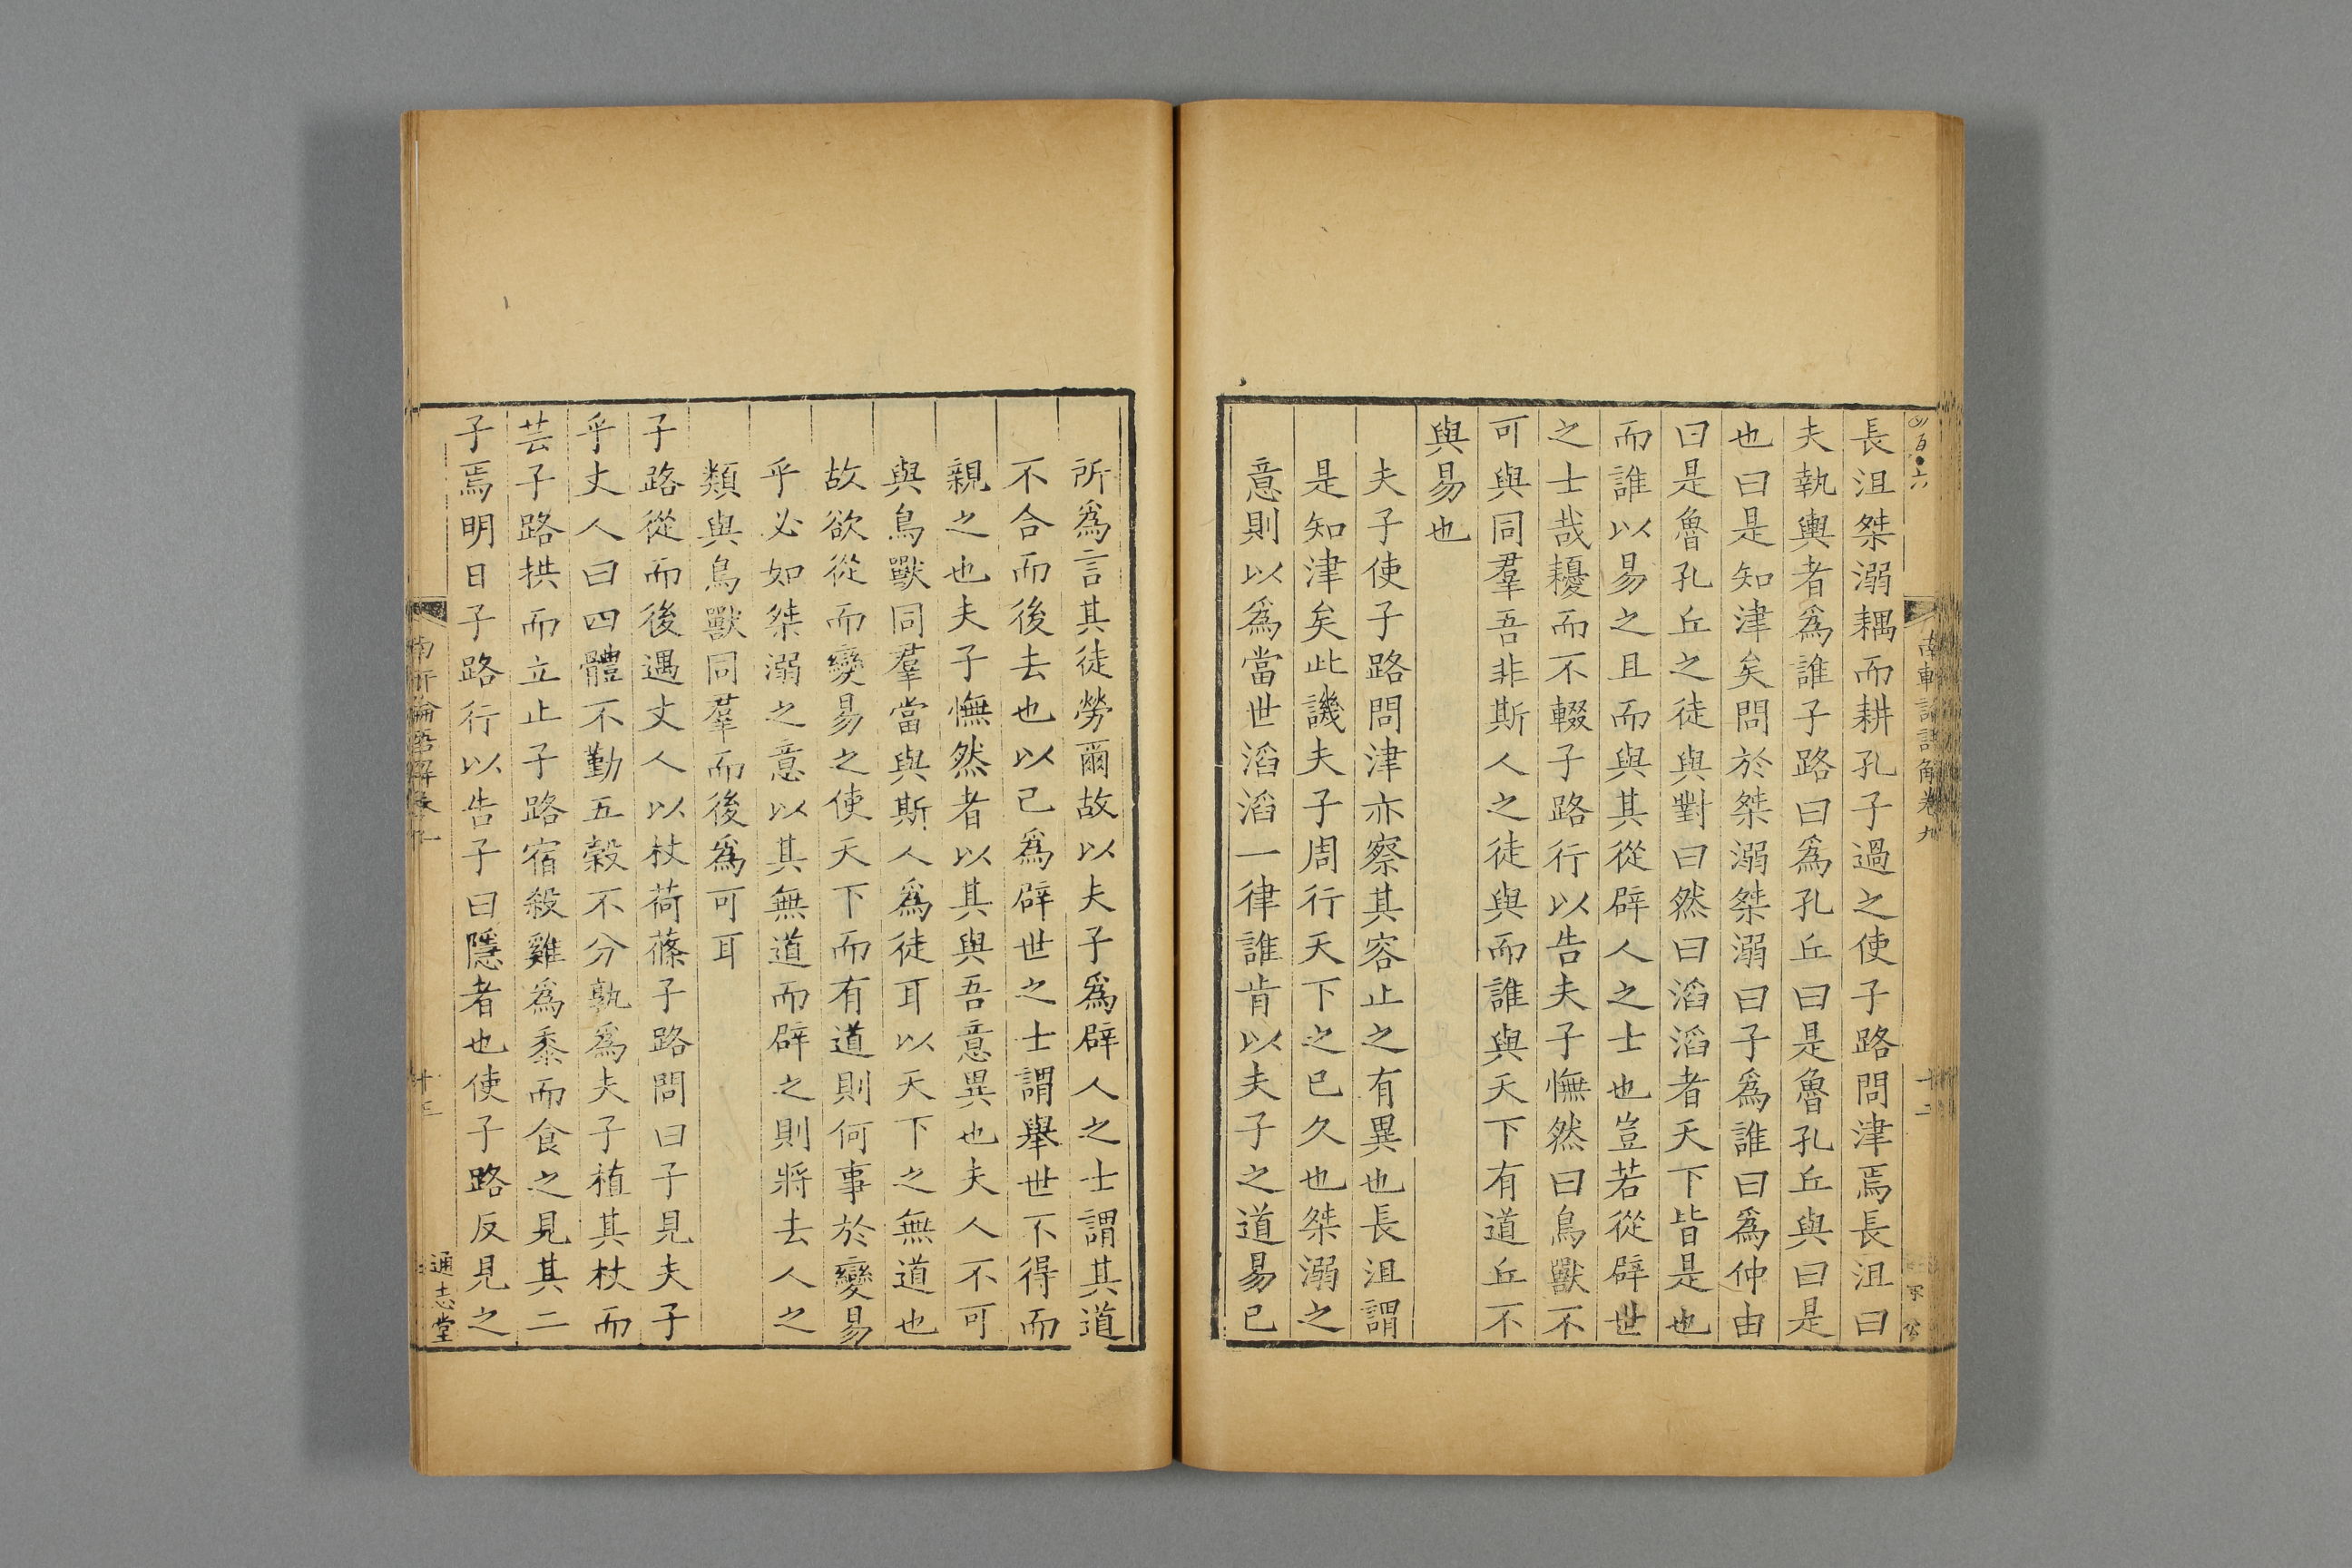 四百六
南軒論語解卷九
十二
長沮桀溺耦而耕孔子過之使子路問津焉長沮曰
夫執輿者爲誰子路曰爲孔丘曰是魯孔丘與曰是
也曰是知津矣問於桀溺桀溺曰子爲誰曰爲仲由
曰是魯孔丘之徒與對曰然曰滔滔者天下皆是也
而誰以易之且而與其從辟人之士也豈若從辟世
之士哉耰而不輟子路行以告夫子憮然曰鳥獸不
可與同羣吾非斯人之徒與而誰與天下有道丘不
與易也
夫子使子路問津亦察其容止之有異也長沮謂
是知津矣此譏夫子周行天下之已久也桀溺之
意則以爲當世滔滔一律誰肯以夫子之道易已
所爲言其徒勞爾故以夫子爲辟人之士謂其道
不合而後去也以己爲辟世之士謂舉世不得而
親之也夫子憮然者以其與吾意異也夫人不可
與鳥獸同羣當與斯人爲徒耳以天下之無道也
故欲從而變易之使天下而有道則何事於變易
乎必如桀溺之意以其無道而辟之則將去人之
類與鳥獸同羣而後爲可耳
子路從而後遇丈人以杖荷蓧子路問曰子見夫子
乎丈人曰四體不勤五穀不分孰爲夫子植其杖而
芸子路拱而立止子路宿殺雞爲黍而食之見其二
子焉明日子路行以告子曰隱者也使子路反見之
南軒論語解卷九
十三
通志堂